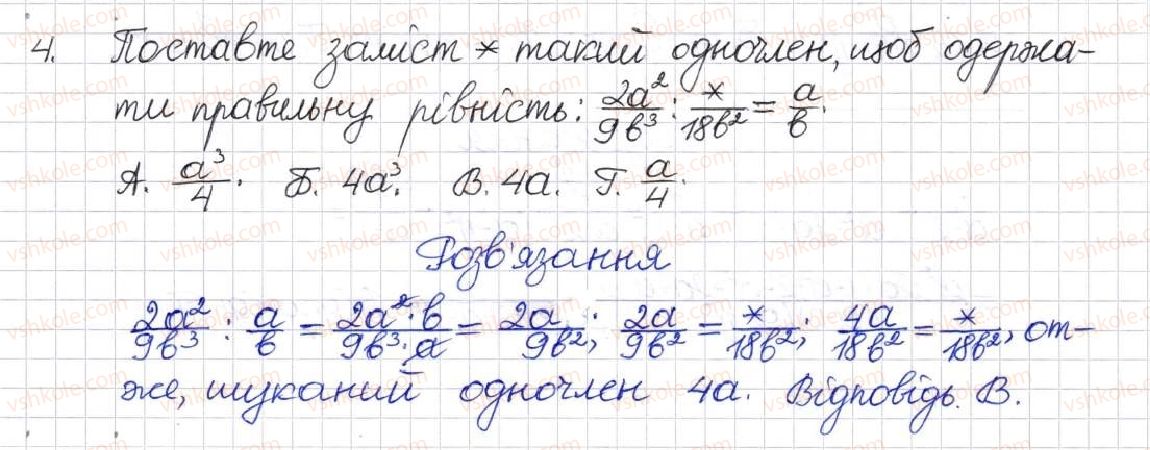 4. Поставте заміст * такий одночлен, щоб одержа-
ти правильну рівність: 2a²/9b³ : */18b² = a/b.
А. a³/4. Б. 4a³. В. 4a. Г. a/4.
Розв'язання
2a²/9b³ : a/b = 2a²·b/9b³·a = 2a/9b²; 2a/9b² = */18b²; 4a/18b² = */18b², от-
же, шуканий одночлен 4a. Відповідь. В.